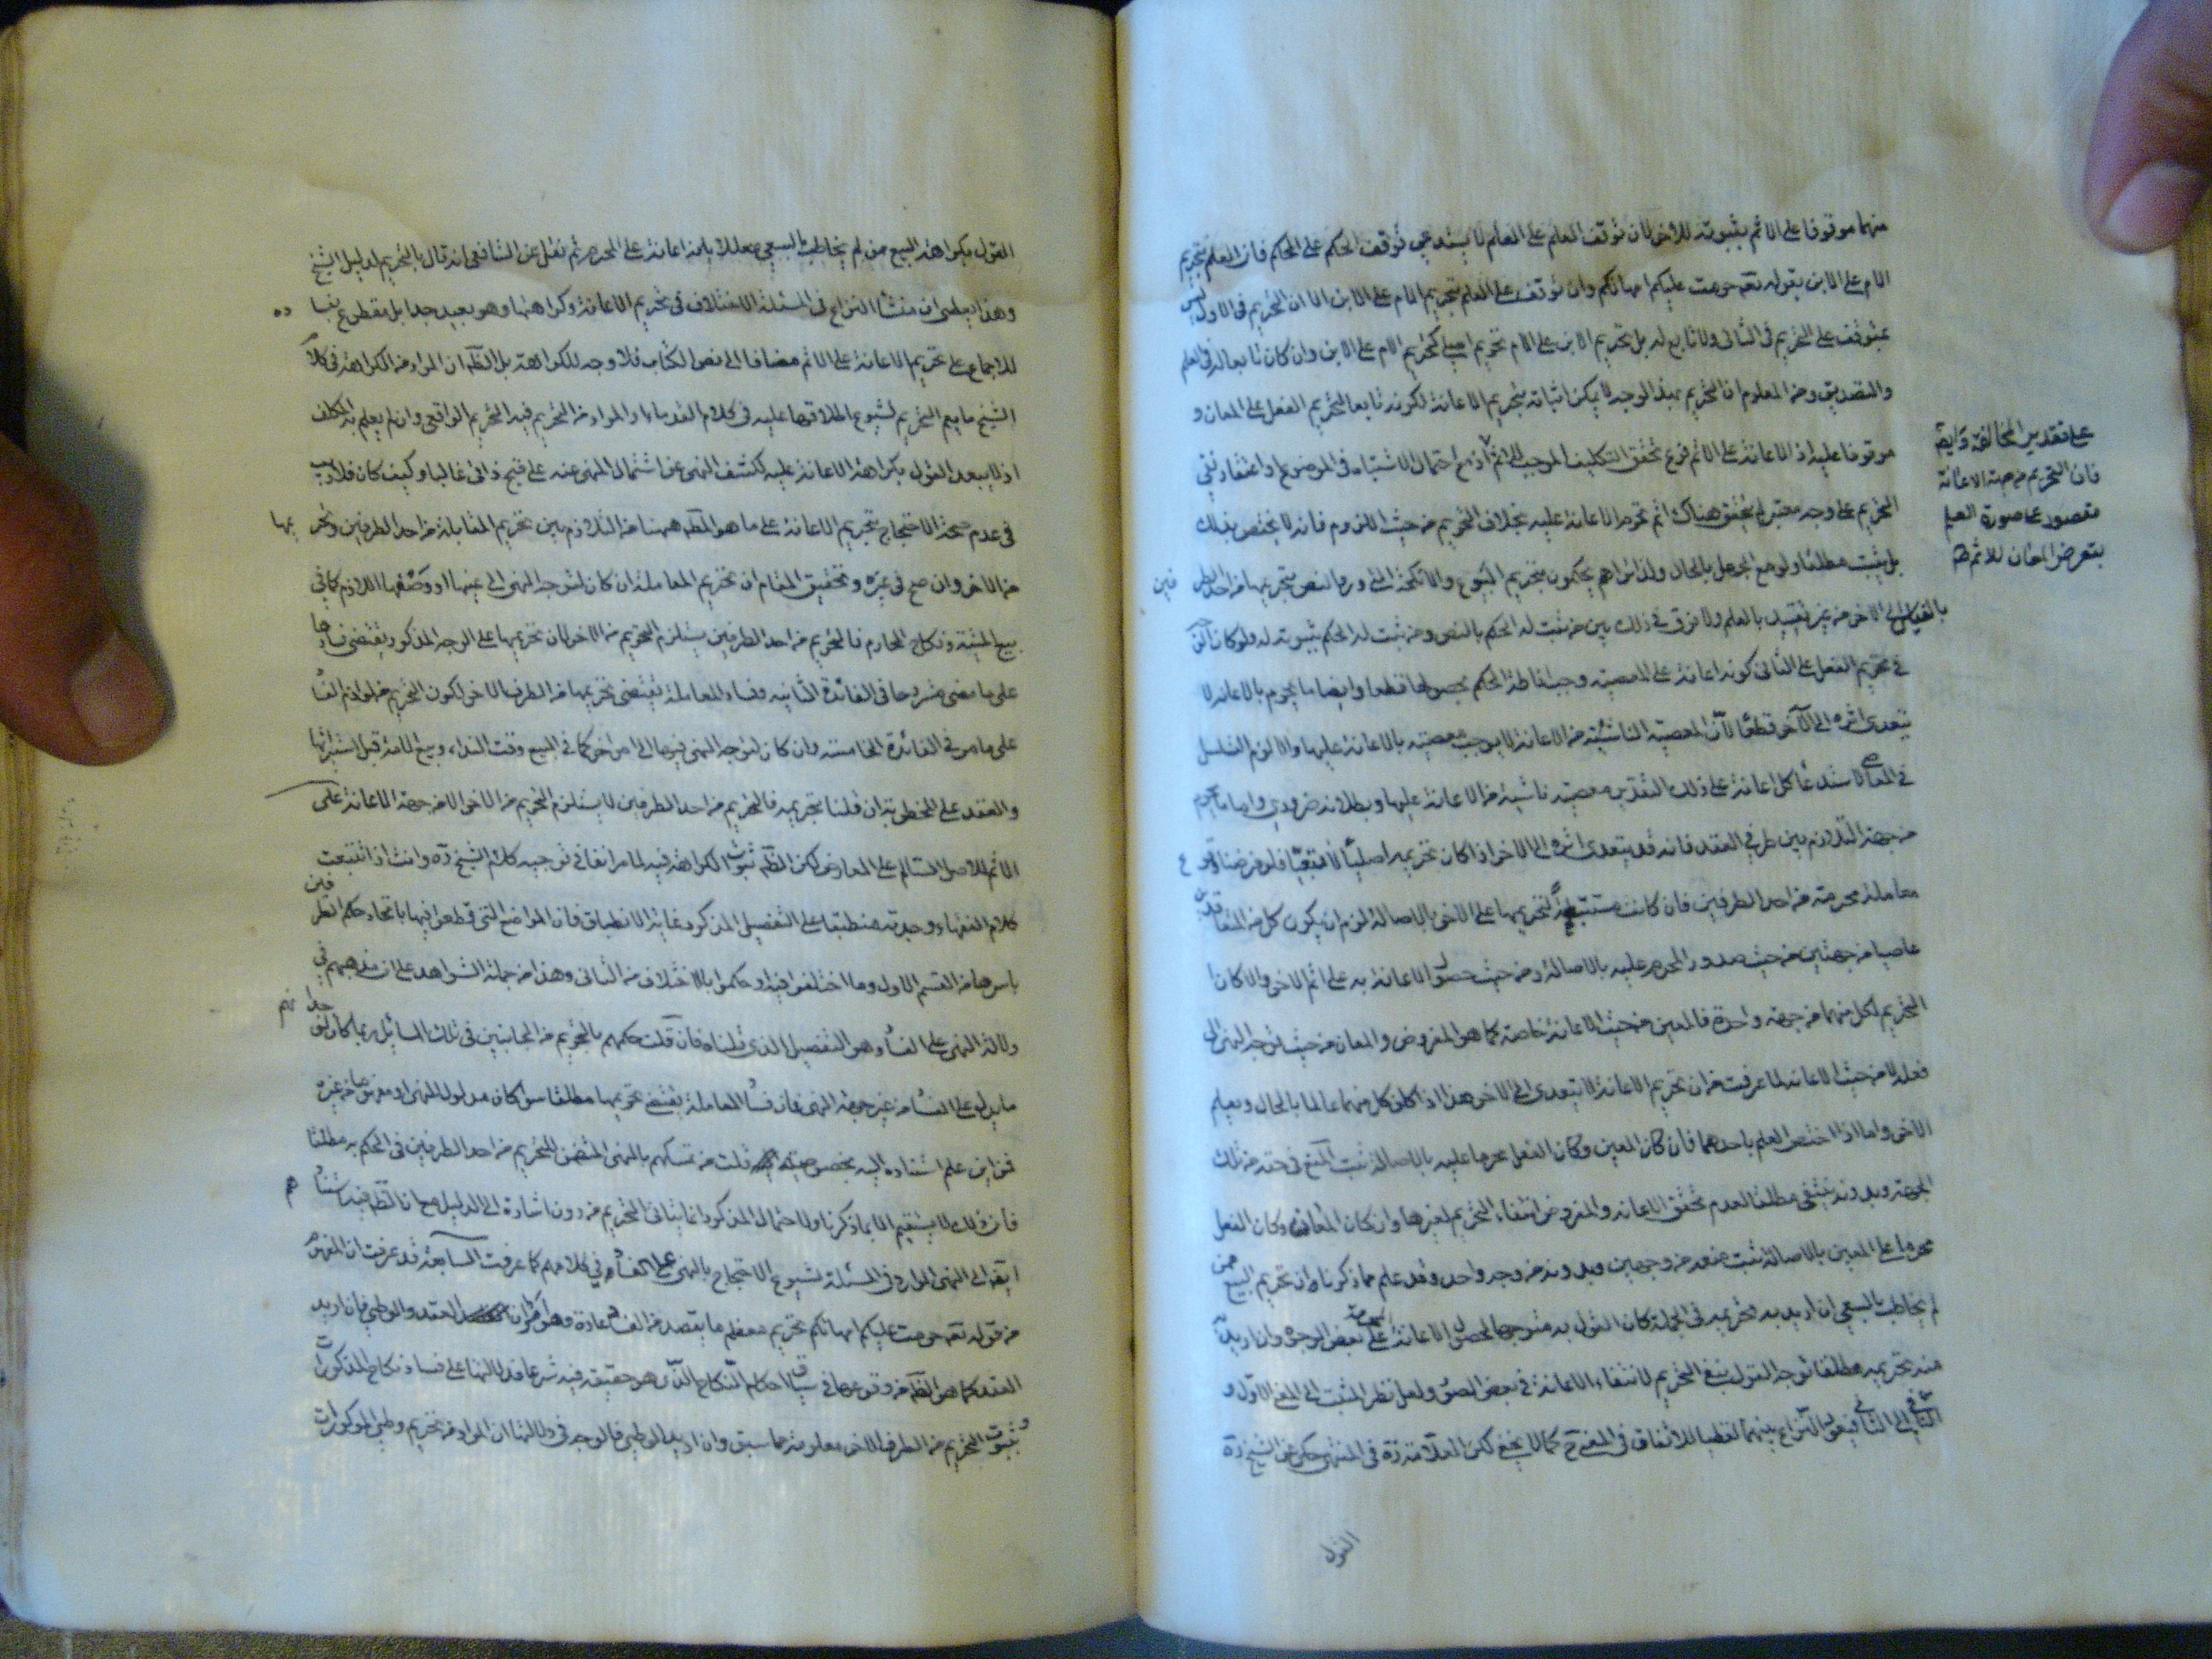 منهما موقوفا على الاثم بثبوته للاخر لان توقف العلم على العلم لا يستدعي توقف الحكم على الحكم فان العلم بتحريم
الام على الابن بقوله تعه حرمت عليكم امهاتكم وان توقف على العلم بتحريم الام على الابن الا ان التحريم في الاول ليس
بمتوقف على التحريم في الثاني ولا تابع له بل تحريم الابن على الام تحريم اصلي كتحريم الام على الابن وان كان تابعا له في العلم
والتصديق ومن المعلوم ان التحريم بهذا الوجه لا يمكن اثباته بتحريم الاعانة لكونه تابعا لتحريم الفعل على المعان و
موقوفا عليه اذ الاعانة على الاثم فرع تحقق التكليف الموجب للاثم اذ مع احتمال الاشتباه في الموضوع او اعتقاد نفي
التحريم على وجه معتبر لا يتحقق هناك اثم تحرم الاعانة عليه بخلاف التحريم من حيث اللزوم فانه لا يختص بذلك
بل يثبت مطلقا ولو مع الجهل بالحال ولذا تراهم يحكمون بتحريم البيوع والانكحة التي ورد النص بتحريمها من احد الطرفين
بالقياس الى الاخر من غير تقييد بالعلم ولا فرق في ذلك بين من ثبت له الحكم بالنص ومن ثبت له الحكم بثبوته له ولو كان الوجه
في تحريم الفعل على الثاني كونه اعانة على المعصية وجب اناطة الحكم بحصولها قطعا وايضا ما يحرم بالاعانة لا
يتعدى اثره الى الآخر قطعًا لانّ المعصية الناشئة من الاعانة لا يوجب معصية بالاعانة عليها والا لزم التسلسل
في المعاصي لاستدعا كل اعانة على ذلك التقدير معصية ناشية من الاعانة عليها وبطلانه ضروري واما ما يحرم
من جهة التلازم بين طرفي العقد فانه قد يتعدى اثره الى الاخر اذا كان تحريمه اصليًا لا تبعيًا فلو فرضنا وقوع
معاملة محرمة من احد الطرفين فان كانت مستتبعة لتحريمها على الاخر بالاصالة لزم ان يكون كل من المتعاقدين
عاصيا من جهتين من حيث صدور المحرم عليه بالاصالة ومن حيث حصول الاعانة به على اثم الاخر والا كان
التحريم لكل منهما من جهة واحدة فالمعين من حيث الاعانة خاصة كما هو المفروض والمعان من حيث توجه النهي الى
فعله لا من حيث الاعانة لما عرفت من ان تحريم الاعانة لا يتعدى الى الاخر هذا اذا كان كل منهما عالما بالحال وبعلم
الاخر واما اذا اختص العلم باحدهما فان كان المعين وكان الفعل محرما عليه بالاصالة ثبت المنع في حقه من تلك
الجهة وبدونه ينتفي مطلقا لعدم تحقق الاعانة والمفروض انتفاء التحريم لغيرها وان كان المعان وكان الفعل
محرما على المعين بالاصالة ثبت منعه من وجهين وبدونه من وجه واحد وقد علم مما ذكرناه ان تحريم البيع ممن
لم يخاطب بالسعي ان اريد به تحريمه في الجملة كان القول به متوجها لحصول الاعانة المحرمة على بعض الوجوه وان اريد به
منه تحريمه مطلقا توجه القول بنفي التحريم لانتفاء الاعانة في بعض الصور ولعل نظر المثبت الى المعنى الاول و
النافي الى الثاني فيبقى النزاع بينهما لفظيا للاتفاق في المعنى ح كما لا يخفى لكن العلامة ره في المنتهى حكى عن الشيخ ره
على تقدير المخالفة وايضا
فان التحريم من جهة الاعانة
مقصور على صورة العلم
بتعرض المعان للاثم
القول
القول بكراهة البيع ممن لم يخاطب بالسعي معللا بانه اعانة على المحرم ثم نقل عن الشافعي انه قال بالتحريم لدليل الشيخ
وهذا يعطى ان منشأ النزاع في المسئلة الاختلاف في تحريم الاعانة وكراهتها وهو بعيد جدا بل مقطوع بفساده
للاجماع على تحريم الاعانة على الاثم مضافا الى نص الكتاب فلا وجه للكراهة بل الظّه ان المراد من الكراهة في كلام
الشيخ ما يعم التحريم لشيوع اطلاقها عليه في كلام القدماء او المراد من التحريم فيه التحريم الواقعي وان لم يعلم به المكلف
اذ لا يبعد القول بكراهة الاعانة عليه لكشف النهي عن اشتمال المنهي عنه على قبح ذاتي غالبا وكيف كان فلا ريب
في عدم صحة الاحتجاج بتحريم الاعانة على ما هو المظه ههنا من التلازم بين تحريم المقابلة من احد الطرفين وتحريمها
من الاخر وان صح في غيره وتحقيق المقام ان تحريم المعاملة ان كان لتوجه النهي الى عينها او وصفها اللازم كما في
بيع الميتة ونكاح المحارم فالتحريم من احد الطرفين يستلزم التحريم من الاخر لان تحريمها على الوجه المذكور يقتضي فسادها
على ما مضى مشروحا في الفائدة الثانيه وفساد المعاملة يقتضى تحريمها من الطرف الاخر لكون التحريم من لوازم الفسا
على ما مر في الفائدة الخامسة وان كان لتوجه النهى فيها الى امر اخر كما في البيع وقت النداء وبيع الامة قبل استبرائها
والعقد على المخطوبة ان قلنا بتحريمه فالتحريم من احد الطرفين لا يستلزم التحريم من الاخر الا من جهة الاعانة على
الاثم للاصل السالم على المعارض لكن الظه ثبوت الكراهة فيه لما مر انفا في توجيه كلام الشيخ ره وانت اذا تتبعت
كلام الفقهاء وجدته منطبقا على التفصيل المذكور غاية الانطباق فان المواضع التي قطعوا فيها باتحاد حكم الطرفين
باسرها من القسم الاول وما اختلفوا فيه او حكموا بالاختلاف من الثاني وهذا من جملة الشواهد على ان مذهبهم في
دلالة النهى على الفسا هو التفصيل الذي قلناه فان قلت حكمهم بالتحريم من الجانبين في تلك المسائل ربما كان لوجدانهم
ما يدل على الفسا من غير جهة النهى فان فسا المعاملة يقتضى تحريمها مطلقا سوا كان مدلولا للنهى او مفهوما من غيره
فمن اين علم استناده اليه بخصوصه قلت من تمسكهم بالنهى المتضمن للتحريم من احد الطرفين في الحكم به مطلقا
فان ذلك لا يستقيم الا بما ذكرنا والاحتمال المذكور انما يتاتى التحريم من دون اشارة الى الدليل مع ان الظه فيه استنادهم
ايضا الى النهى الوارد في المسئلة لشيوع الاحتجاج بالنهى على الفسا في كلامهم كما عرفت السابعة قد عرفت ان المفهوم
من قوله تعه حرمت عليكم امهاتكم تحريم معظم ما يقصد من النسا عادة وهو امران العقد والوطي فان اريد
العقد كما هو الظه من وقوعها في سياق احكام النكاح الذى هو حقيقة فيه شرعا فدلالتها على فساد نكاح المذكورات
وثبوت التحريم من الطرف الاخر معلومة مما سبق وان اريد الوطي فالوجه في دلالتها ان المراد من تحريم وطي المذكورات